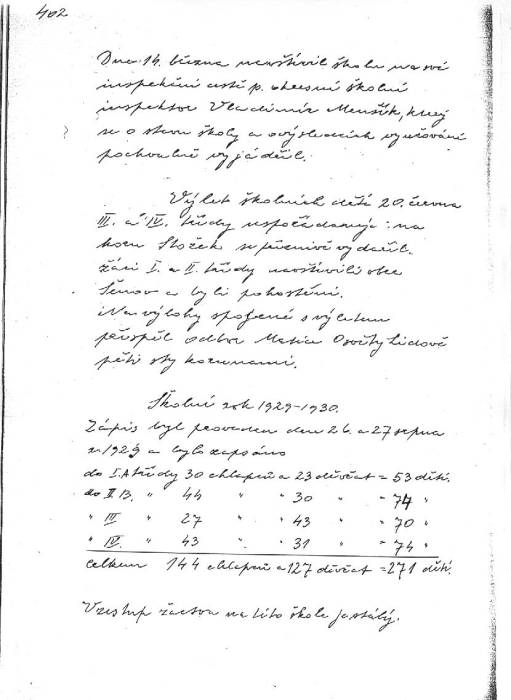 402
Dne 14. března navštívil školu na své
inspekční cestě p. okresní školní
inspektor Vladimír Menšík, který
se o stavu školy a výsledcích vyučování
pochvalně vyjádřil.
Výlet školních dětí 20. června
III. a IV. třídy uspořádaný na
horu Stožek se příznivě vydařil.
žáci I. a II. třídy navštívili obec
Šenov a byli pohostěni.
Na výlohy spojené s výletem
přispěl odbor Matice Osvěty Lidové
pěti sty korunami.
Školní rok 1929-1930.
Zápis byl proveden dne 26. a 27 srpna
r. 1929 a bylo zapsáno
do I. A třídy 30 chlapců a 23 děvčat = 53 dětí.
do II B. " 44 " " 30 " = 74 "
" III " 27 " " 43 " = 70 "
" IV. " 43 " " 31 " = 74 "
Celkem 144 chlapců a 127 děvčat = 271 dětí.
Vzestup žactva na této škole je stálý.